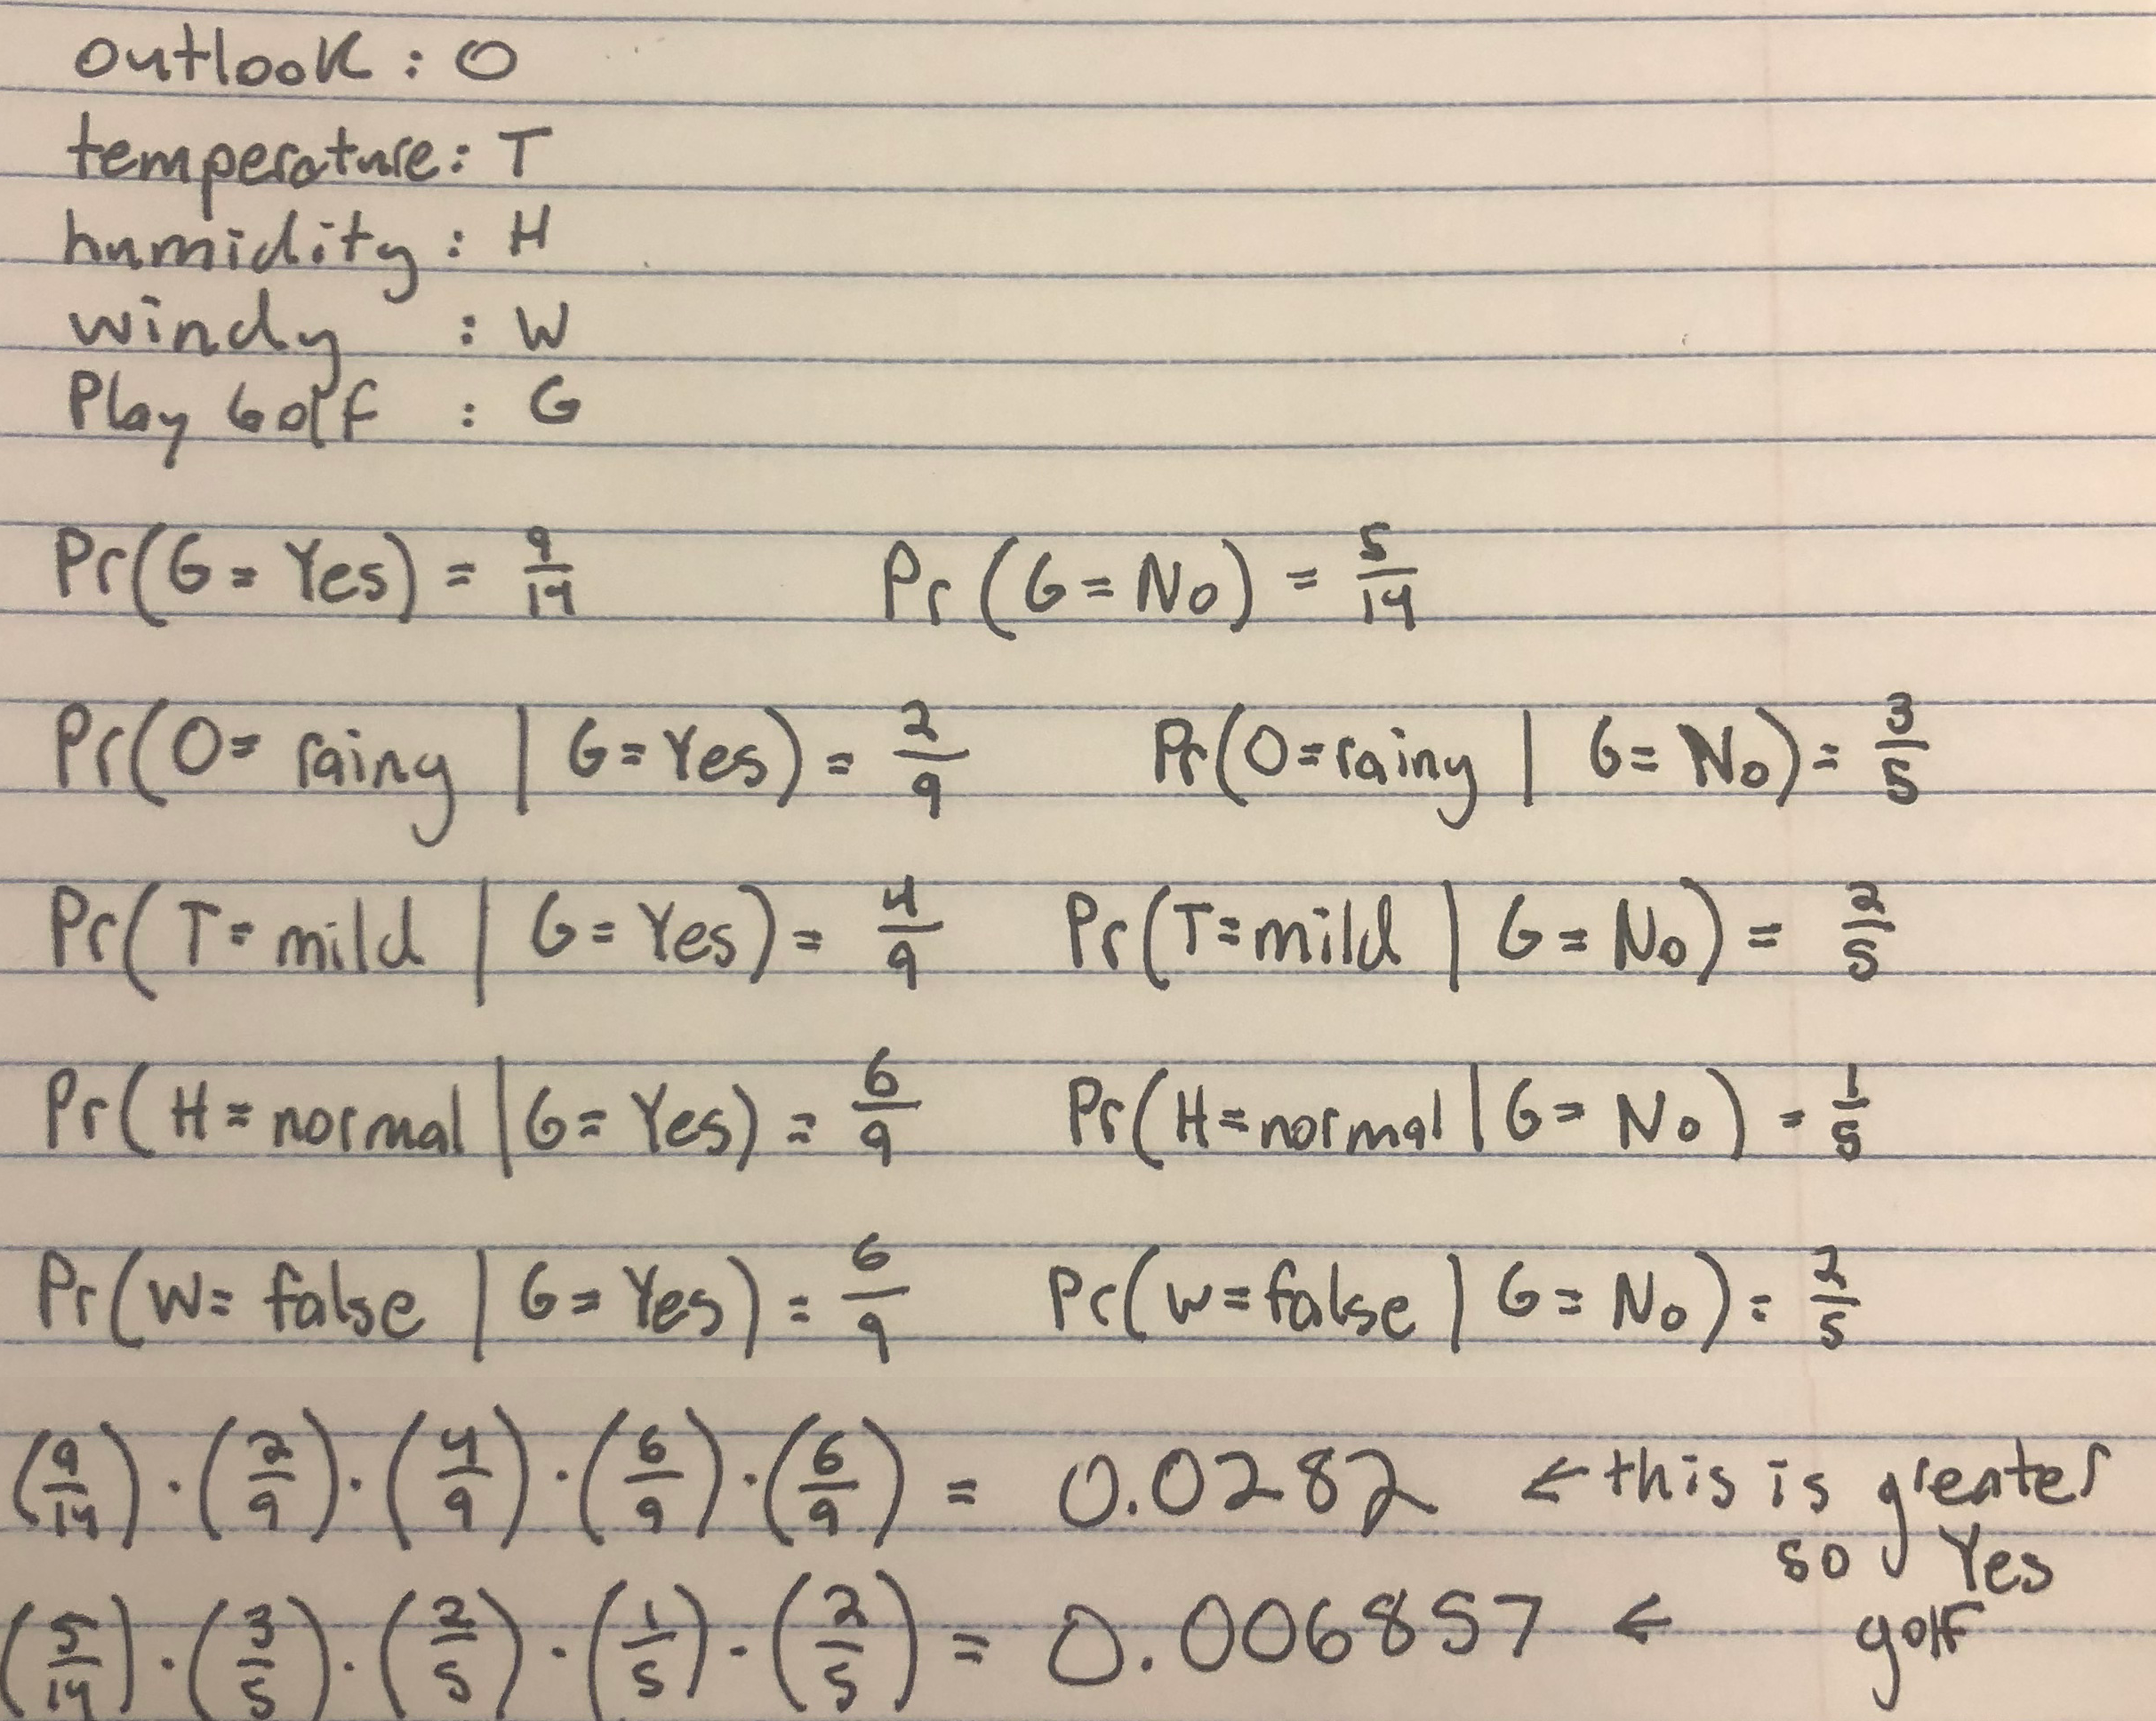 outlook : O
temperature: T
humidity : H
windy : W
Play Golf : G
Pr(G = Yes) = 9/14 Pr(G = No) = 5/14
Pr(O = rainy | G = Yes) = 2/9 Pr(O = rainy | G = No) = 3/5
Pr(T = mild | G = Yes) = 4/9 Pr(T = mild | G = No) = 2/5
Pr(H = normal | G = Yes) = 6/9 Pr(H = normal | G = No) = 1/5
Pr(W = false | G = Yes) = 6/9 Pr(W = false | G = No) = 2/5
(9/14) · (2/9) · (4/9) · (6/9) · (6/9) = 0.0282 ← this is greater
so Yes
(5/14) · (3/5) · (2/5) · (1/5) · (2/5) = 0.006857 ← golf